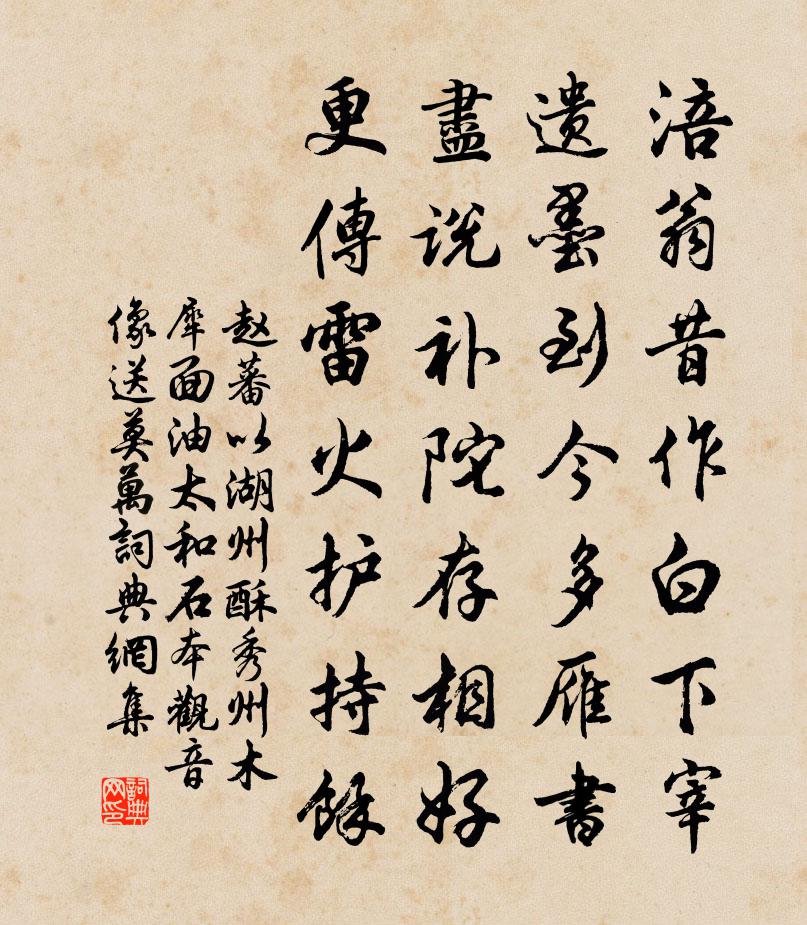 涪翁昔作白下宰
遗墨到今多雁書
盡说补陀存相好
更傳雷火护持餘
赵蕃以湖州酥秀州木
犀面油太和石本觀音
像送莫萬詞典網集
詞典
网印